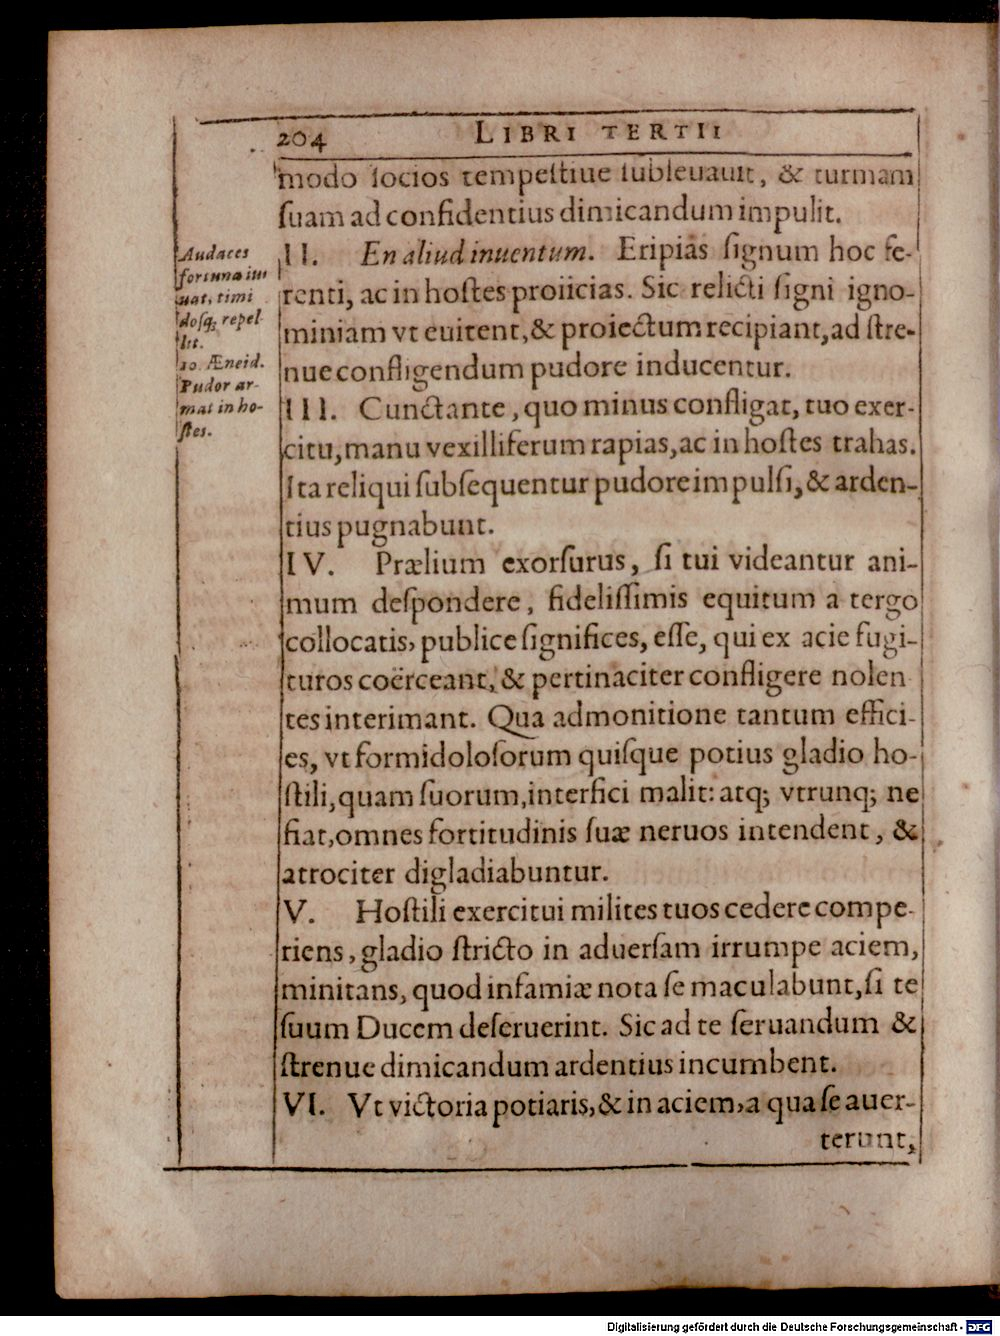 204 LIBRI TERTII
modo ſocios tempeſtiue ſubleuauit, & turmam
ſuam ad confidentius dimicandum impulit.
II. En aliud inuentum. Eripias ſignum hoc fe-
renti, ac in hoſtes proiicias. Sic relicti ſigni igno-
miniam vt euitent, & proiectum recipiant, ad ſtre-
nue confligendum pudore inducentur.
III. Cunctante, quo minus confligat, tuo exer-
citu, manu vexilliferum rapias, ac in hoſtes trahas.
Ita reliqui ſubſequentur pudore impulſi, & arden-
tius pugnabunt.
IV. Prælium exorſurus, ſi tui videantur ani-
mum deſpondere, fideliſſimis equitum a tergo
collocatis, publice ſignifices, eſſe, qui ex acie fugi-
turos coërceant, & pertinaciter confligere nolen
tes interimant. Qua admonitione tantum effici-
es, vt formidoloſorum quiſque potius gladio ho-
ſtili, quam ſuorum, interfici malit: atq; vtrunq; ne
fiat, omnes fortitudinis ſuæ neruos intendent, &
atrociter digladiabuntur.
V. Hoſtili exercitui milites tuos cedere compe-
riens, gladio ſtricto in aduerſam irrumpe aciem,
minitans, quod infamiæ nota ſe maculabunt, ſi te
ſuum Ducem deſeruerint. Sic ad te ſeruandum &
ſtrenue dimicandum ardentius incumbent.
VI. Vt victoria potiaris, & in aciem, a qua ſe auer-
terunt,
Audaces
fortuna iu
uat, timi
doſq; repel
lit.
10. Æneid.
Pudor ar-
mat in ho-
ſtes.
Digitalisierung gefördert durch die Deutsche Forschungsgemeinschaft - DFG